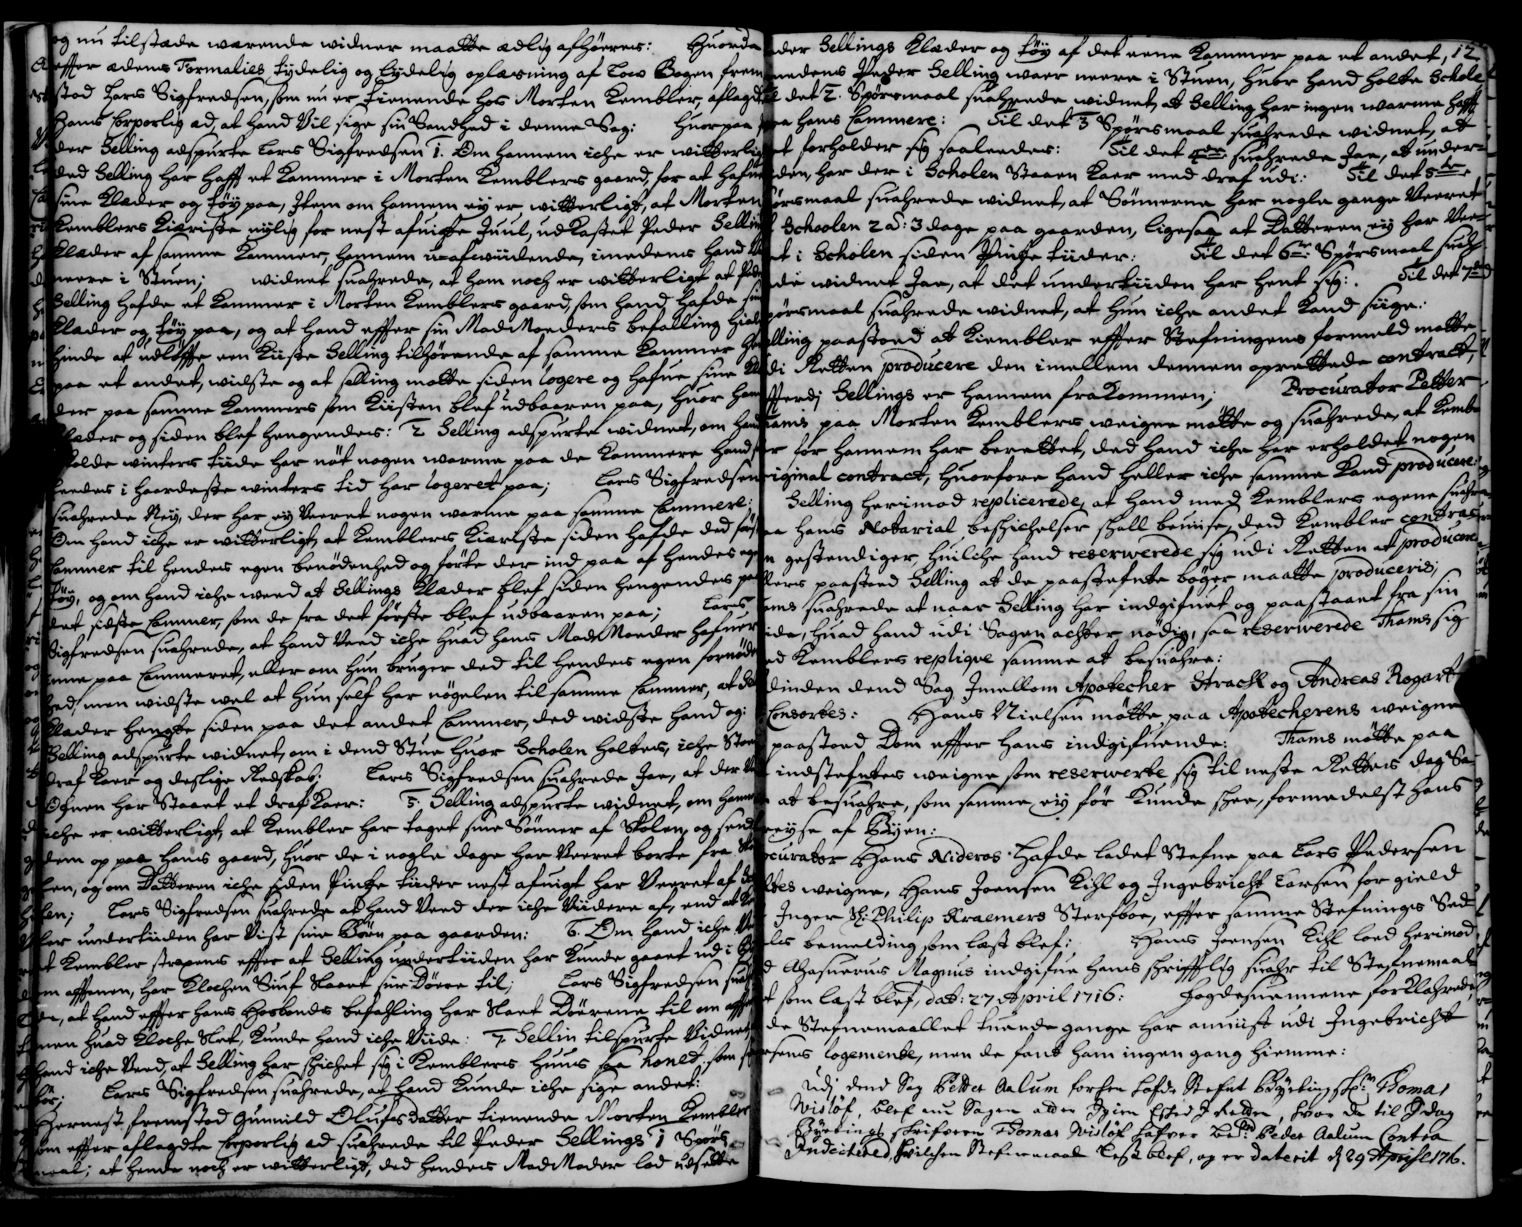 og nu tilstæde warende widner maatte ædlig afhøeres: Huorda
effter ædens Formalies tydelig og lydelig oplæsning af Low Bogen frem
stod Lars Sigfredsen, som nu er tienende hos Morten Kembler, aflagde
hans Corporlig æd, at hand Vil sige sin Sandhed i denne Sag: Huorpaa
der Selling adspurte Lars Sigfredsen 1. Om hannem iche er witterlig
ded Selling har hafft et Kammer i Morten Kemblers gaard, for at hafue
sine Klæder og tøy paa, Item om hannem ey er witterligt, at Morten
Kemblers Kiæriste nylig for nest afuigte Juul, udkastet Peder Selling
Klæder af samme Kammer, hannem uafwidende, imedens hand
mere i Stuen; widnet suahrede, at ham noch er witterligt at Peder
Selling hafde et Kammer i Morten Kemblers gaard, som hand hafde sin
Klæder og tøy paa, og at hand effter sin MadMoeders befalling hialp
hinde at udløffte een Kiiste Selling tilhørende af samme Kammer
paa et andet, widste og at selling motte siden logere og hafue sine
der paa samme Kammers som Kiisten blef udbaaren paa, huor hans
Klæder og siden blef hengendes: 2 Selling adspurte widnet, om hand
Kolde winters tiide har nøt nogen warme paa de Kammere hand
hendes i haardeste winters tid har logeret paa; Lars Sigfredsen
suahrede Ney, der har ey Været nogen warme paa samme Cammere:
Om hand iche er witterligt, at Kemblers Kiæriste siden hafde ded
Cammer til hendes egen benødenhed og førte der ind paa af hendes eget
Tøy, og om hand iche weed at Sellings Klæder blef siden hengendes paa
det sidste Cammer, som de fra det første blef udbaaren paa; Lars
Sigfredsen suahrede, at hand Veed iche huad hans MadMoeder hafuer
inne paa Cammeret, eller om hun bruger ded til hendes egen fornøden
hed, men widste wel at hun self har nøgelen til samme Cammer, at
Klæder hengte siden paa det andet Cammer, ded widste hand og:
Selling adspurte widnet, om i dend Stue huor Scholen holtes, iche Stoed
draf Kaer og deslige Redskab: Lars Sigfredsen suahrede Jae, at der
Ofuen har Staaet et draf Kaer: 5. Selling adspurte widnet, om hannem
iche er witterligt, at Kembler har taget sine Sønner af Skolen, og sendt
dem op paa hans gaard, huor de i nogle dage har Været borte fra
len, og om Datteren iche siden Pintze tiider nest afuigt har Veeret af
holen; Lars Sigfredsen suahrede at hand Veed der iche Viidere af, end at
bler undertiiden har Vist sine Børn paa gaarden: 6. Om hand iche
at Kembler strapens effter at Selling undertiiden har Kunde gaaet ud i
om afftenen, har Klochen Siuf Slaaet sin Døere til; Lars Sigfredsen
de, at hand effter hans Hosbonds befahling har slaet Døerene til om
tenen huad Kloche Slet, Kunde hand iche Viide: 7. Sellin tilspurte Vidnet
hand iche Veed, at Selling har schichet sig i Kemblers Huus saa honet, som
bør: Lars Sigfredsen suahrede, at hand Kunde iche sige andet:
Hernest, fremstod Gunnild Olufsdatter tienende Morten Kembler
om effter aflagdte Corporlig æd suahrede til Peder Sellings 1 Spørs
maal; at hende noch er witterligt, ded hendes MadModer lod udsette
12
eder Sellings Klæder og tøy af det eene Kammer paa et andet,
medens Peder Selling waer neere i Stuen, huor hand holte Schole
til det 2. Spørsmaal suahrede widnet, at Selling har ingen warme hafft
paa hans Cammere: Til det 3 Spørsmaal suahrede widnet, at
et forholder sig saaledes: Til det 4de suahrede Jae, at under
den, har der i Scholen Staaen Kaer med draf udi: Til det 5te
ørsmaal suahrede widnet, at Sønnerne har nogle gange Veeret
Schoolen 2 a: 3 dage paa gaarden, ligesaa at Datteren ey har Vee
et i Scholen siden Pintze tiider: Til det 6te Spørsmaal suah
de widnet Jae, at det undertiiden har hent sig: Til det 7de
pørsmaal suahrede widnet, at hun iche andet Kand siige:
elling paastoed at Kiembler effter Stefningens formeld motte
di Retten producere den imellem dennem oprettede contract,
fferdj Sellings er hannem frakommen; Procurator Petter
Thams paa Morten Kemblers weigne møtte og suahrede, at Kemb
er for hannem har berettet, ded hand iche har erholdet nogen
riginal contract, huorfore hand heller iche samme Kand producere:
Selling herimod replicerede, at hand med Kemblers egene suahr
paa hans Notarial beschichelser schall beuise, ded Kembler contrac
n gestendiger, huilche hand reserwerede sig udi Retten at producere
llers paastoed Selling at de paastefnte bøger maatte produceris,
ams suahrede at naar Selling har indgifuet og paastaaet fra sin
ide, huad hand udi Sagen achter nødig, saa reserwerede Thams sig
ed Kemblers replique samme at besuahre:
dinden dend Sag Imellom Apotecher Strach og Andreas Rogart
Consortes: Hans Nielsen møtte paa Apothecherens weigne
paastoed Dom effter hans indgifuende: Thams møtte paa
indstefntes weigne som reserwerte sig til neste Rettens dag Sa
at besuahre, som samme ey før Kunde skee, formedelst hans
reyse af Byen:
ocurator Hans Nideros hafde ladet Stefne paa Lars Pedersen
ltes weigne, Hans Joensen Kihl og Ingebricht Larsen for gield
Inger Sl: Philip Kræmers Sterfboe, effter samme Stefnings Sed
les bemelding som læst blef: Hans Joensen Kihl loed herimod
d Ahasuerus Magnus indgifue hans schrifftlig suahr til Stefnemaalet
t som læst blef, dat: 27 April 1716: Fogdesuennene forklahrede
de Stefnemaallet tuende gange har anuist udi Ingebricht
rsens logemente, men de fant ham ingen gang hiemme:
Udj dend Sag Petter Aalum forhen hafde Stefnt Byetings skr: Thomas
Wisløf, blef nu Sagen
Byetings skrifueren Thomas Wisløf hafuer Peder Aalum Contra
huilchen Stefnemaal læst blef, og er daterit d 29 April 1716.